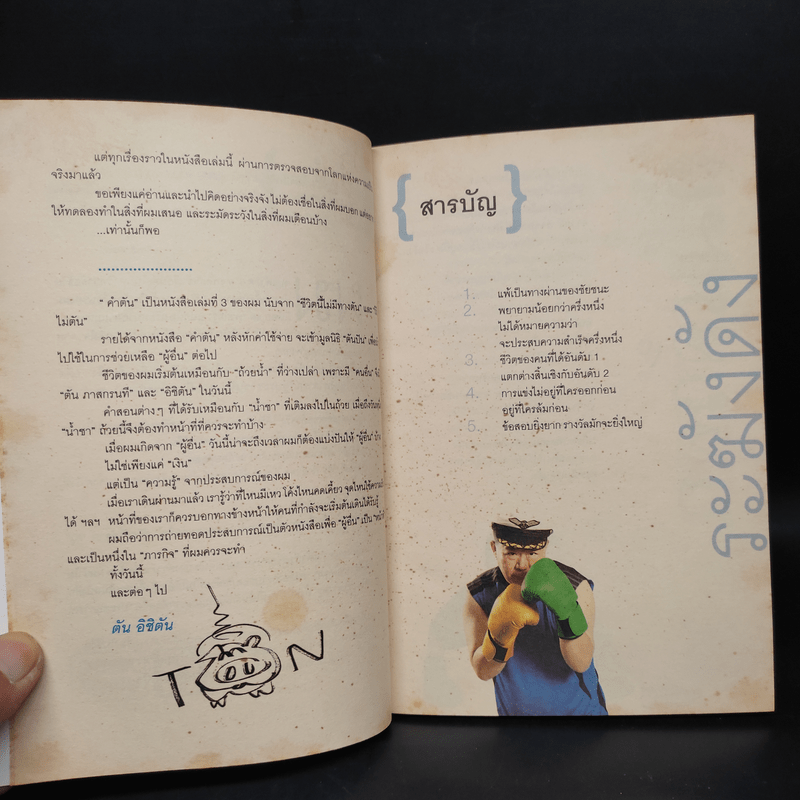 แต่ทุกเรื่องราวในหนังสือเล่มนี้ ผ่านการตรวจสอบจากโลกแห่งความ
จริงมาแล้ว
ขอเพียงแค่อ่านและนำไปคิดอย่างจริงจัง ไม่ต้องเชื่อในสิ่งที่ผมบอก
ให้ทดลองทำในสิ่งที่ผมเสนอ และระมัดระวังในสิ่งที่ผมเตือนบ้าง
...เท่านั้นก็พอ
"คำตัน" เป็นหนังสือเล่มที่ 3 ของผม นับจาก "ชีวิตนี้ไม่มีทางตัน" และ
ไม่ตัน"
รายได้จากหนังสือ "คำตัน" หลังหักค่าใช้จ่าย จะเข้ามูลนิธิ "ตันปัน"
ไปใช้ในการช่วยเหลือ "ผู้อื่น" ต่อไป
ชีวิตของผมเริ่มต้นเหมือนกับ "ถ้วยน้ำ" ที่ว่างเปล่า เพราะมี "คนอื่น"
"ตัน ภาสกรนที" และ "อิชิตัน" ในวันนี้
คำสอนต่างๆ ที่ได้รับเหมือนกับ "น้ำชา" ที่เติมลงไปในถ้วย เมื่อถึงวันหนึ่ง
"น้ำชา" ถ้วยนี้จึงต้องทำหน้าที่ที่ควรจะทำบ้าง
เมื่อผมเกิดจาก "ผู้อื่น" วันนี้น่าจะถึงเวลาผมก็ต้องแบ่งปันให้ "ผู้อื่น" บ้าง
ไม่ใช่เพียงแค่ "เงิน"
แต่เป็น "ความรู้" จากประสบการณ์ของผม
เมื่อเราเดินผ่านมาแล้ว เรารู้ว่าที่ไหนมีเหว โค้งไหนคดเคี้ยว จุดไหนใช้ความเร็ว
ได้ ฯลฯ หน้าที่ของเราก็ควรบอกทางข้างหน้าให้คนที่กำลังจะเริ่มต้นเดินได้รับรู้
ผมถือว่าการถ่ายทอดประสบการณ์เป็นตัวหนังสือเพื่อ "ผู้อื่น" เป็น
และเป็นหนึ่งใน "ภารกิจ" ที่ผมควรจะทำ
ทั้งวันนี้
และต่อๆ ไป
ตัน อิชิตัน
TON
{สารบัญ}
1. แพ้เป็นทางผ่านของชัยชนะ
2. พยายามน้อยกว่าครึ่งหนึ่ง
ไม่ได้หมายความว่า
จะประสบความสำเร็จครึ่งหนึ่ง
3. ชีวิตของคนที่ได้อันดับ 1
แตกต่างสิ้นเชิงกับอันดับ 2
4. การแข่งไม่อยู่ที่ใครออกก่อน
อยู่ที่ใครล้มก่อน
5. ข้อสอบยิ่งยาก รางวัลมักจะยิ่งใหญ่
ระฆังดัง